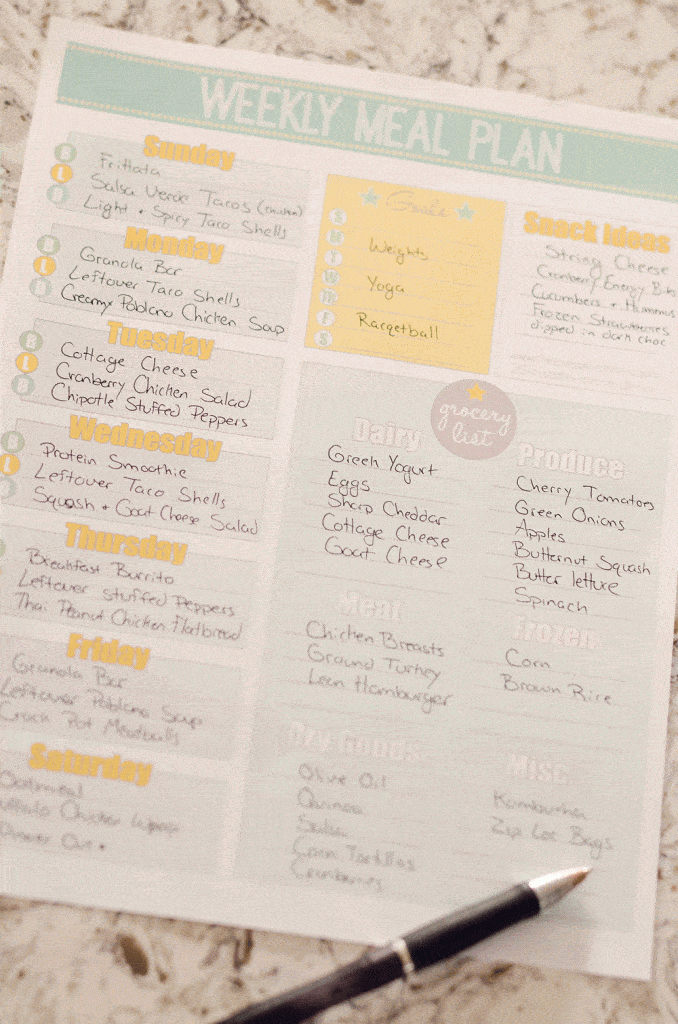 WEEKLY MEAL PLAN
Sunday
B Frittata
L Salsa Verde Tacos (chicken)
D Light + Spicy Taco Shells
Monday
B Granola Bar
L Leftover Taco Shells
D Creamy Poblano Chicken Soup
Tuesday
B Cottage Cheese
L Cranberry Chicken Salad
D Chipotle Stuffed Peppers
Wednesday
B Protein Smoothie
L Leftover Taco Shells
D Squash + Goat Cheese Salad
Thursday
Breakfast Burrito
Leftover Stuffed Peppers
Thai Peanut Chicken flatbread
Friday
Granola Bar
Leftover Poblano Soup
Crock Pot Meatballs
Saturday
Oatmeal
Buffalo Chicken Wraps
Dinner Out
Goals
S
M Weights
T
W Yoga
TH
F Racqetball
S
Snack Ideas
String Cheese
Cranberry Energy Bites
Cucumbers + Hummus
Frozen Strawberries
dipped in dark choc
grocery
list
Dairy
Greek Yogurt
Eggs
Sharp Cheddar
Cottage Cheese
Goat Cheese
Produce
Cherry Tomatoes
Green Onions
Apples
Butternut Squash
Butter lettuce
Spinach
Meat
Chicken Breasts
Ground Turkey
Lean Hamburger
Frozen
Corn
Brown Rice
Dry Goods
Olive Oil
Quinoa
Salsa
Corn Tortillas
Cranberries
Misc.
Kombucha
Zip Loc Bags